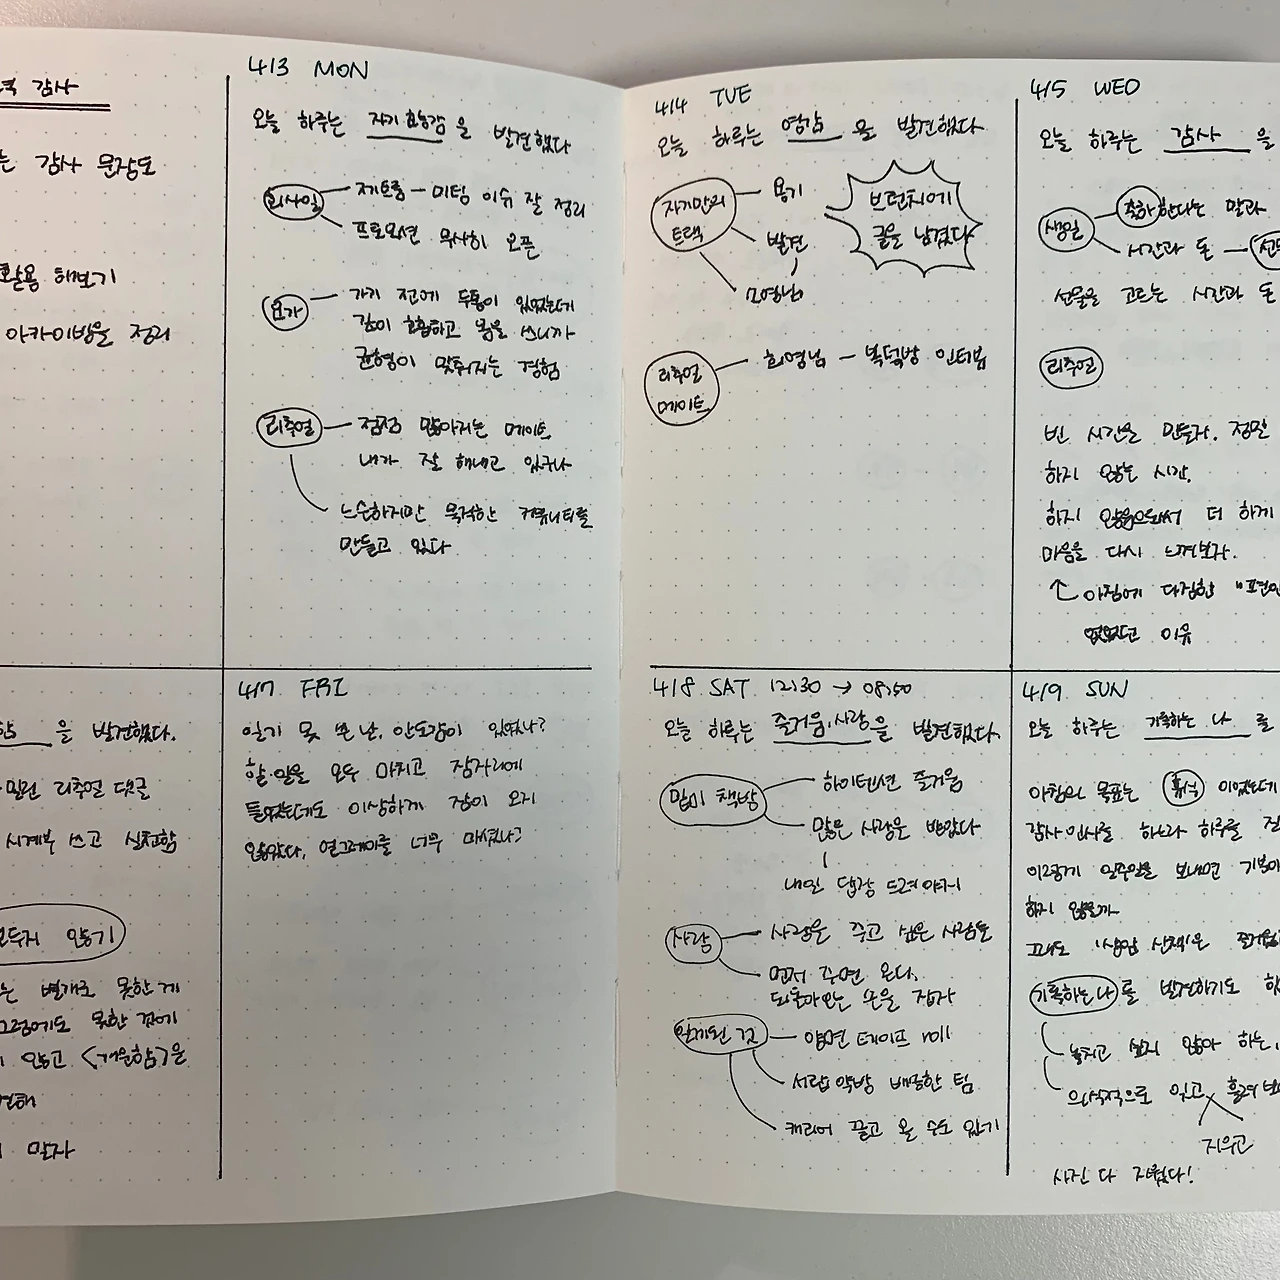 감사
는 감사 문장도
활용 해보기
아카이빙을 정리
4/3 MON
오늘 하루는 자기 효능감 을 발견했다
회사일
제조룡 — 미팅 이슈 잘 정리
프로모션 무사히 오픈
요가
가기 전에 두통이 있었는데
깊이 호흡하고 몸을 쓰니까
균형이 맞춰지는 경험
리추얼
점점 많아지는 메이트
내가 잘 해내고 있구나
느슨하지만 목적한 커뮤니티를
만들고 있다
4/4 TUE
오늘 하루는 영감 을 발견했다
자기만의
트랙
용기
발견
모영님
브런치에
글을 남겼다
리추얼
메이트
희영님 — 복덕방 인터뷰
4/5 WED
오늘 하루는 감사 을
생일
축하한다는 말과
시간과 돈 —
선물을 고르는 시간과 돈
리추얼
빈 시간을 만들자. 정말
하지 않는 시간.
하지 않음으로써 더 하게
마음을 다시 느껴보자.
↑ 아침에 다짐한
없었던 이유
을 발견했다.
밀린 리추얼 댓글
시계부 쓰고 실천함
않기
는 별개로 못한 게
그럼에도 못한 것에
않고 <개운함>은
말자
4/7 FRI
일기 못 쓴 날. 안도감이 있었나?
할 일을 모두 마치고 잠자리에
들었는데도 이상하게 잠이 오지
않았다. 얼그레이를 너무 마셨나?
4/8 SAT 12:30 → 08:50
오늘 하루는 즐거움, 사랑 을 발견했다.
밑미 책방
하이텐션 즐거움
많은 사랑을 받았다
내일 답장 드려야지
사랑
사랑을 주고 싶은 사람들
먼저 주면 온다.
되돌아오는 손을 잡자
알게된 것
양면 테이프 roll
서랍 약방 배송한 팀
캐리어 끌고 올 수도 있기
4/9 SUN
오늘 하루는 기록하는 나 를
아침의 목표는 휴식 이었는데
감사 인사를 하느라 하루를
이렇게 일주일을 보내면 기분이
하지 않을까
그래도 '상암 산책'은
기록하는 나 를 발견하기도
놓치고 싶지 않아 하는,
의식적으로 잊고
지우고
사진 다 지웠다!